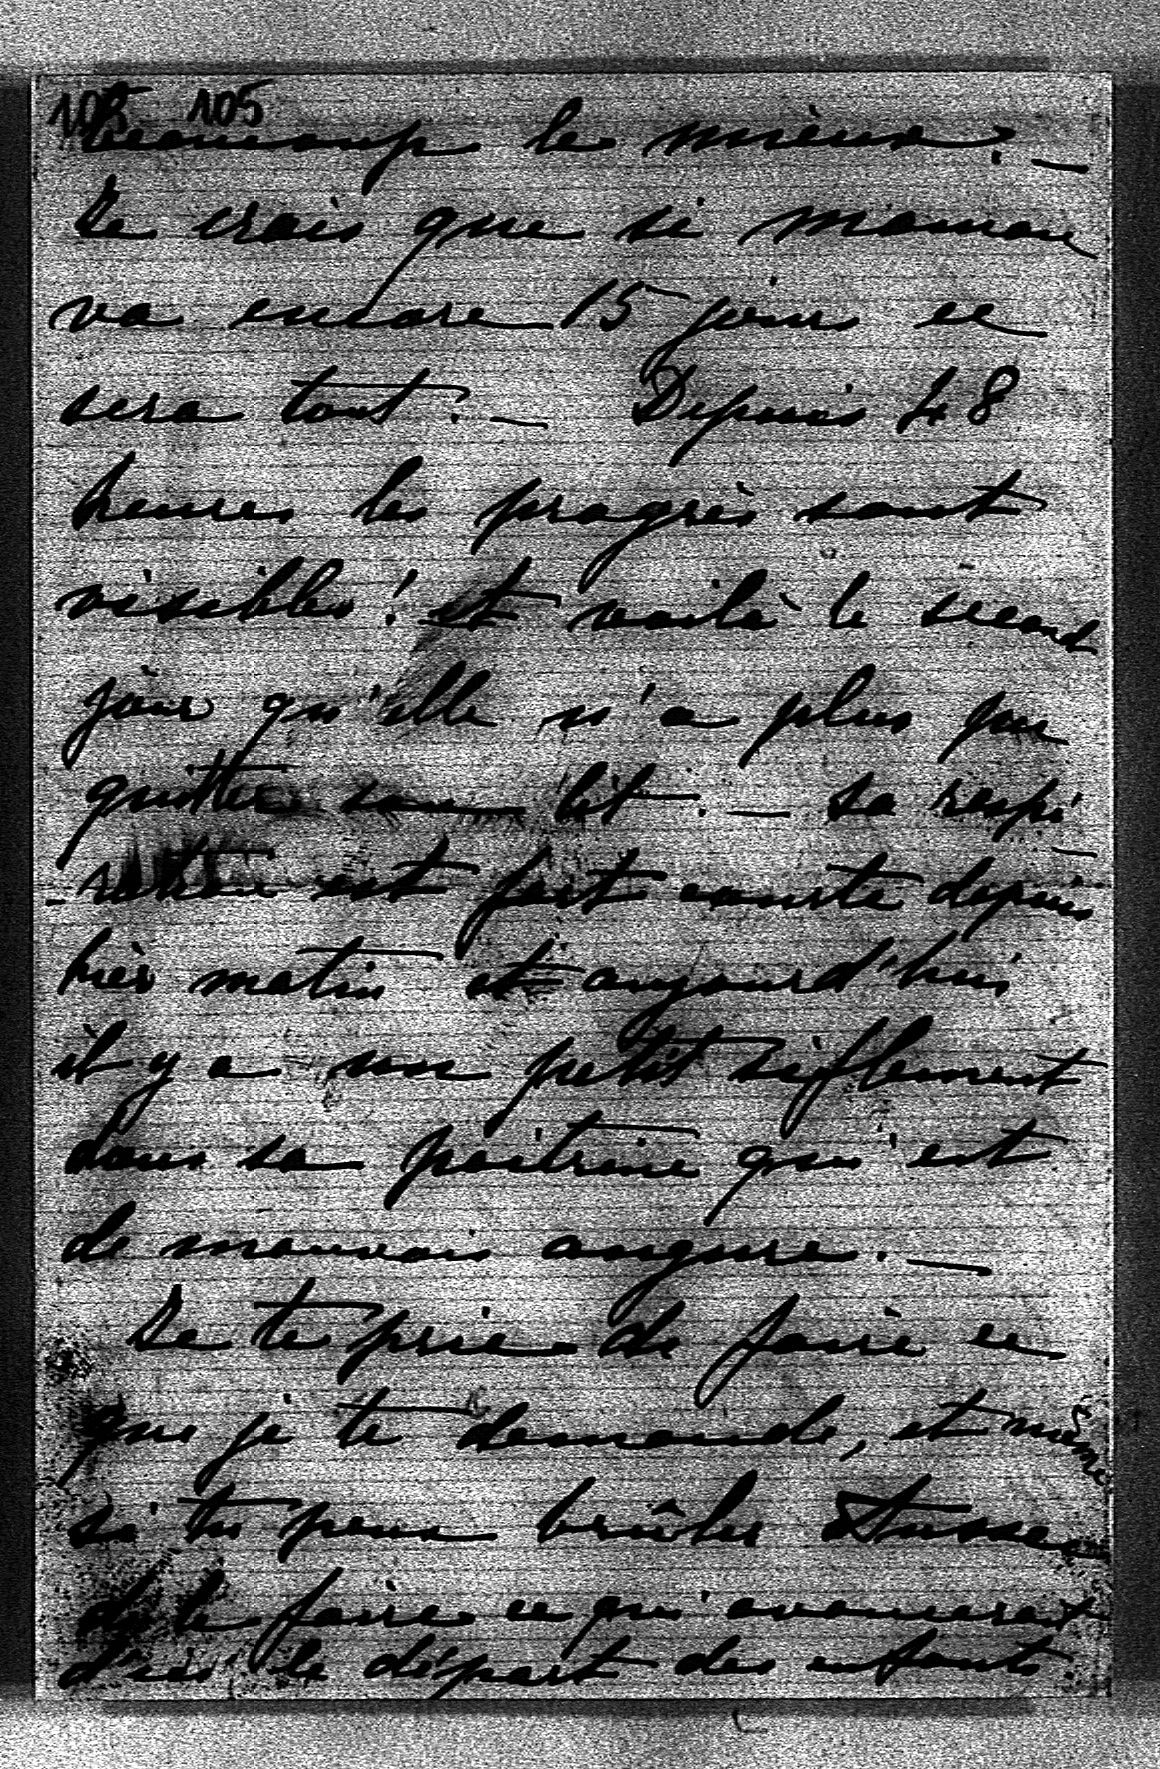 105 105
beaucoup le mieux. —
Je crois que si maman
va encore 15 jours ce
sera tout. — Depuis 48
heures les progrès sont
visibles! et voilà le second
jour qu'elle n'a plus pu
quitter son lit. — Sa respi
-ration est fort courte depuis
hier matin et aujourd'hui
il y a un petit sifflement
dans sa poitrine qui est
de mauvais augure. —
Je te prie de faire ce
que je te demande, et même
si tu peux brûler
de le faire ce qui avancerait
d'ici le départ des enfants